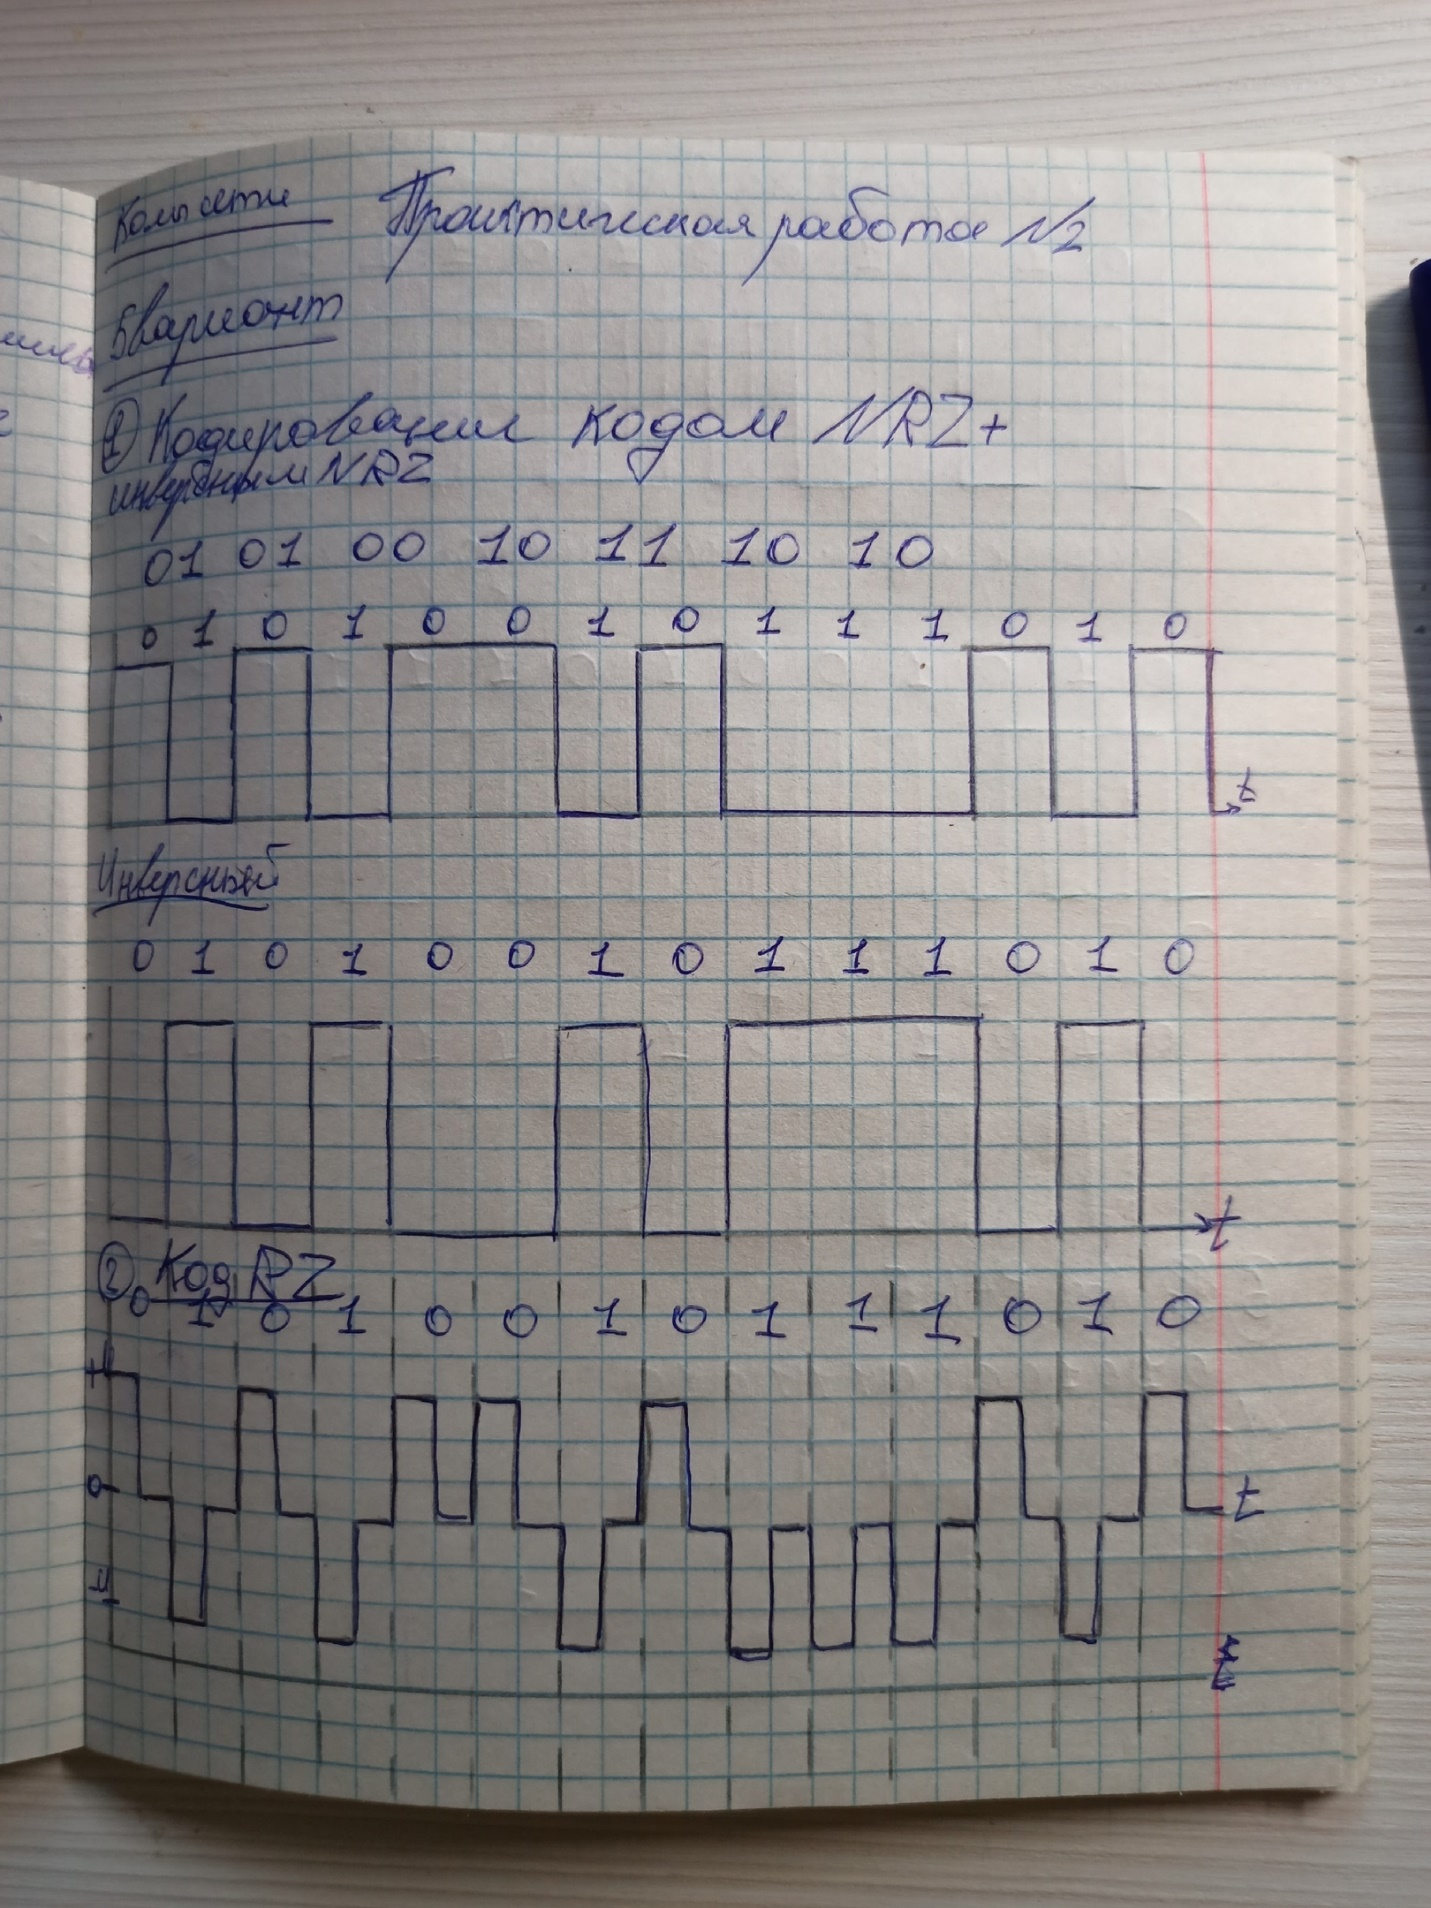 Комп сети Практическая работа №2
5 вариант
① Кодирование кодом NRZ+
инверсным NRZ
01 01 00 10 11 10 10
0 1 0 1 0 0 1 0 1 1 1 0 1 0
t
Инверсный
0 1 0 1 0 0 1 0 1 1 1 0 1 0
t
② Код RZ
0 1 0 1 0 0 1 0 1 1 1 0 1 0
0
t